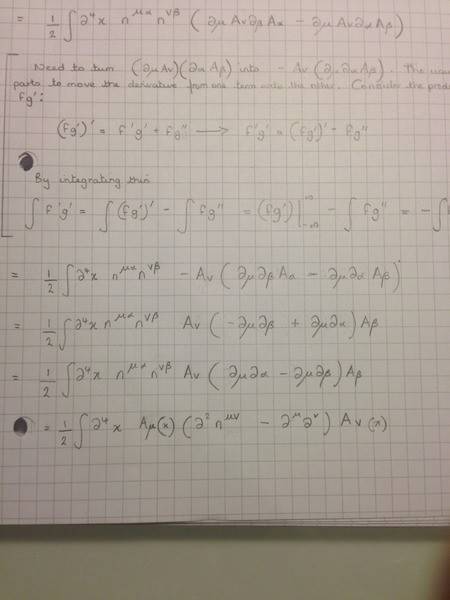 = 1/2 ∫ ∂⁴x η^{μα} η^{νβ} ( ∂μ Aν ∂β Aα − ∂μ Aν ∂α Aβ )
Need to turn (∂μ Aν)(∂α Aβ) into − Aν (∂μ ∂α Aβ). The
parts to move the derivative from one term onto the other. Consider the
fg':
(fg')' = f'g' + fg'' → f'g' = (fg')' − fg''
By integrating this
∫ f'g' = ∫ (fg')' − ∫ fg'' = (fg')|_{−∞}^{+∞} − ∫ fg'' = − ∫
= 1/2 ∫ ∂⁴x η^{μα} η^{νβ} − Aν ( ∂μ ∂β Aα − ∂μ ∂α Aβ )
= 1/2 ∫ ∂⁴x η^{μα} η^{νβ} Aν ( −∂μ ∂β + ∂μ ∂α ) Aβ
= 1/2 ∫ ∂⁴x η^{μα} η^{νβ} Aν ( ∂μ ∂α − ∂μ ∂β ) Aβ
= 1/2 ∫ ∂⁴x Aμ(x) ( ∂² η^{μν} − ∂^μ ∂^ν ) Aν(x)